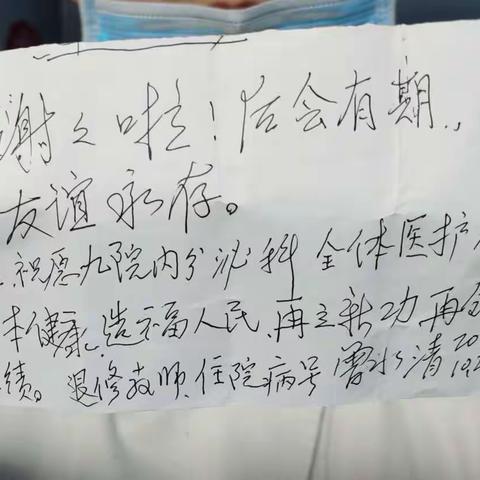 谢々啦！后会有期.,
友谊永存。
祝愿九院内分泌科全体医护
体健康、造福人民、再立新功再
绩。退修教师、住院病号曾水清